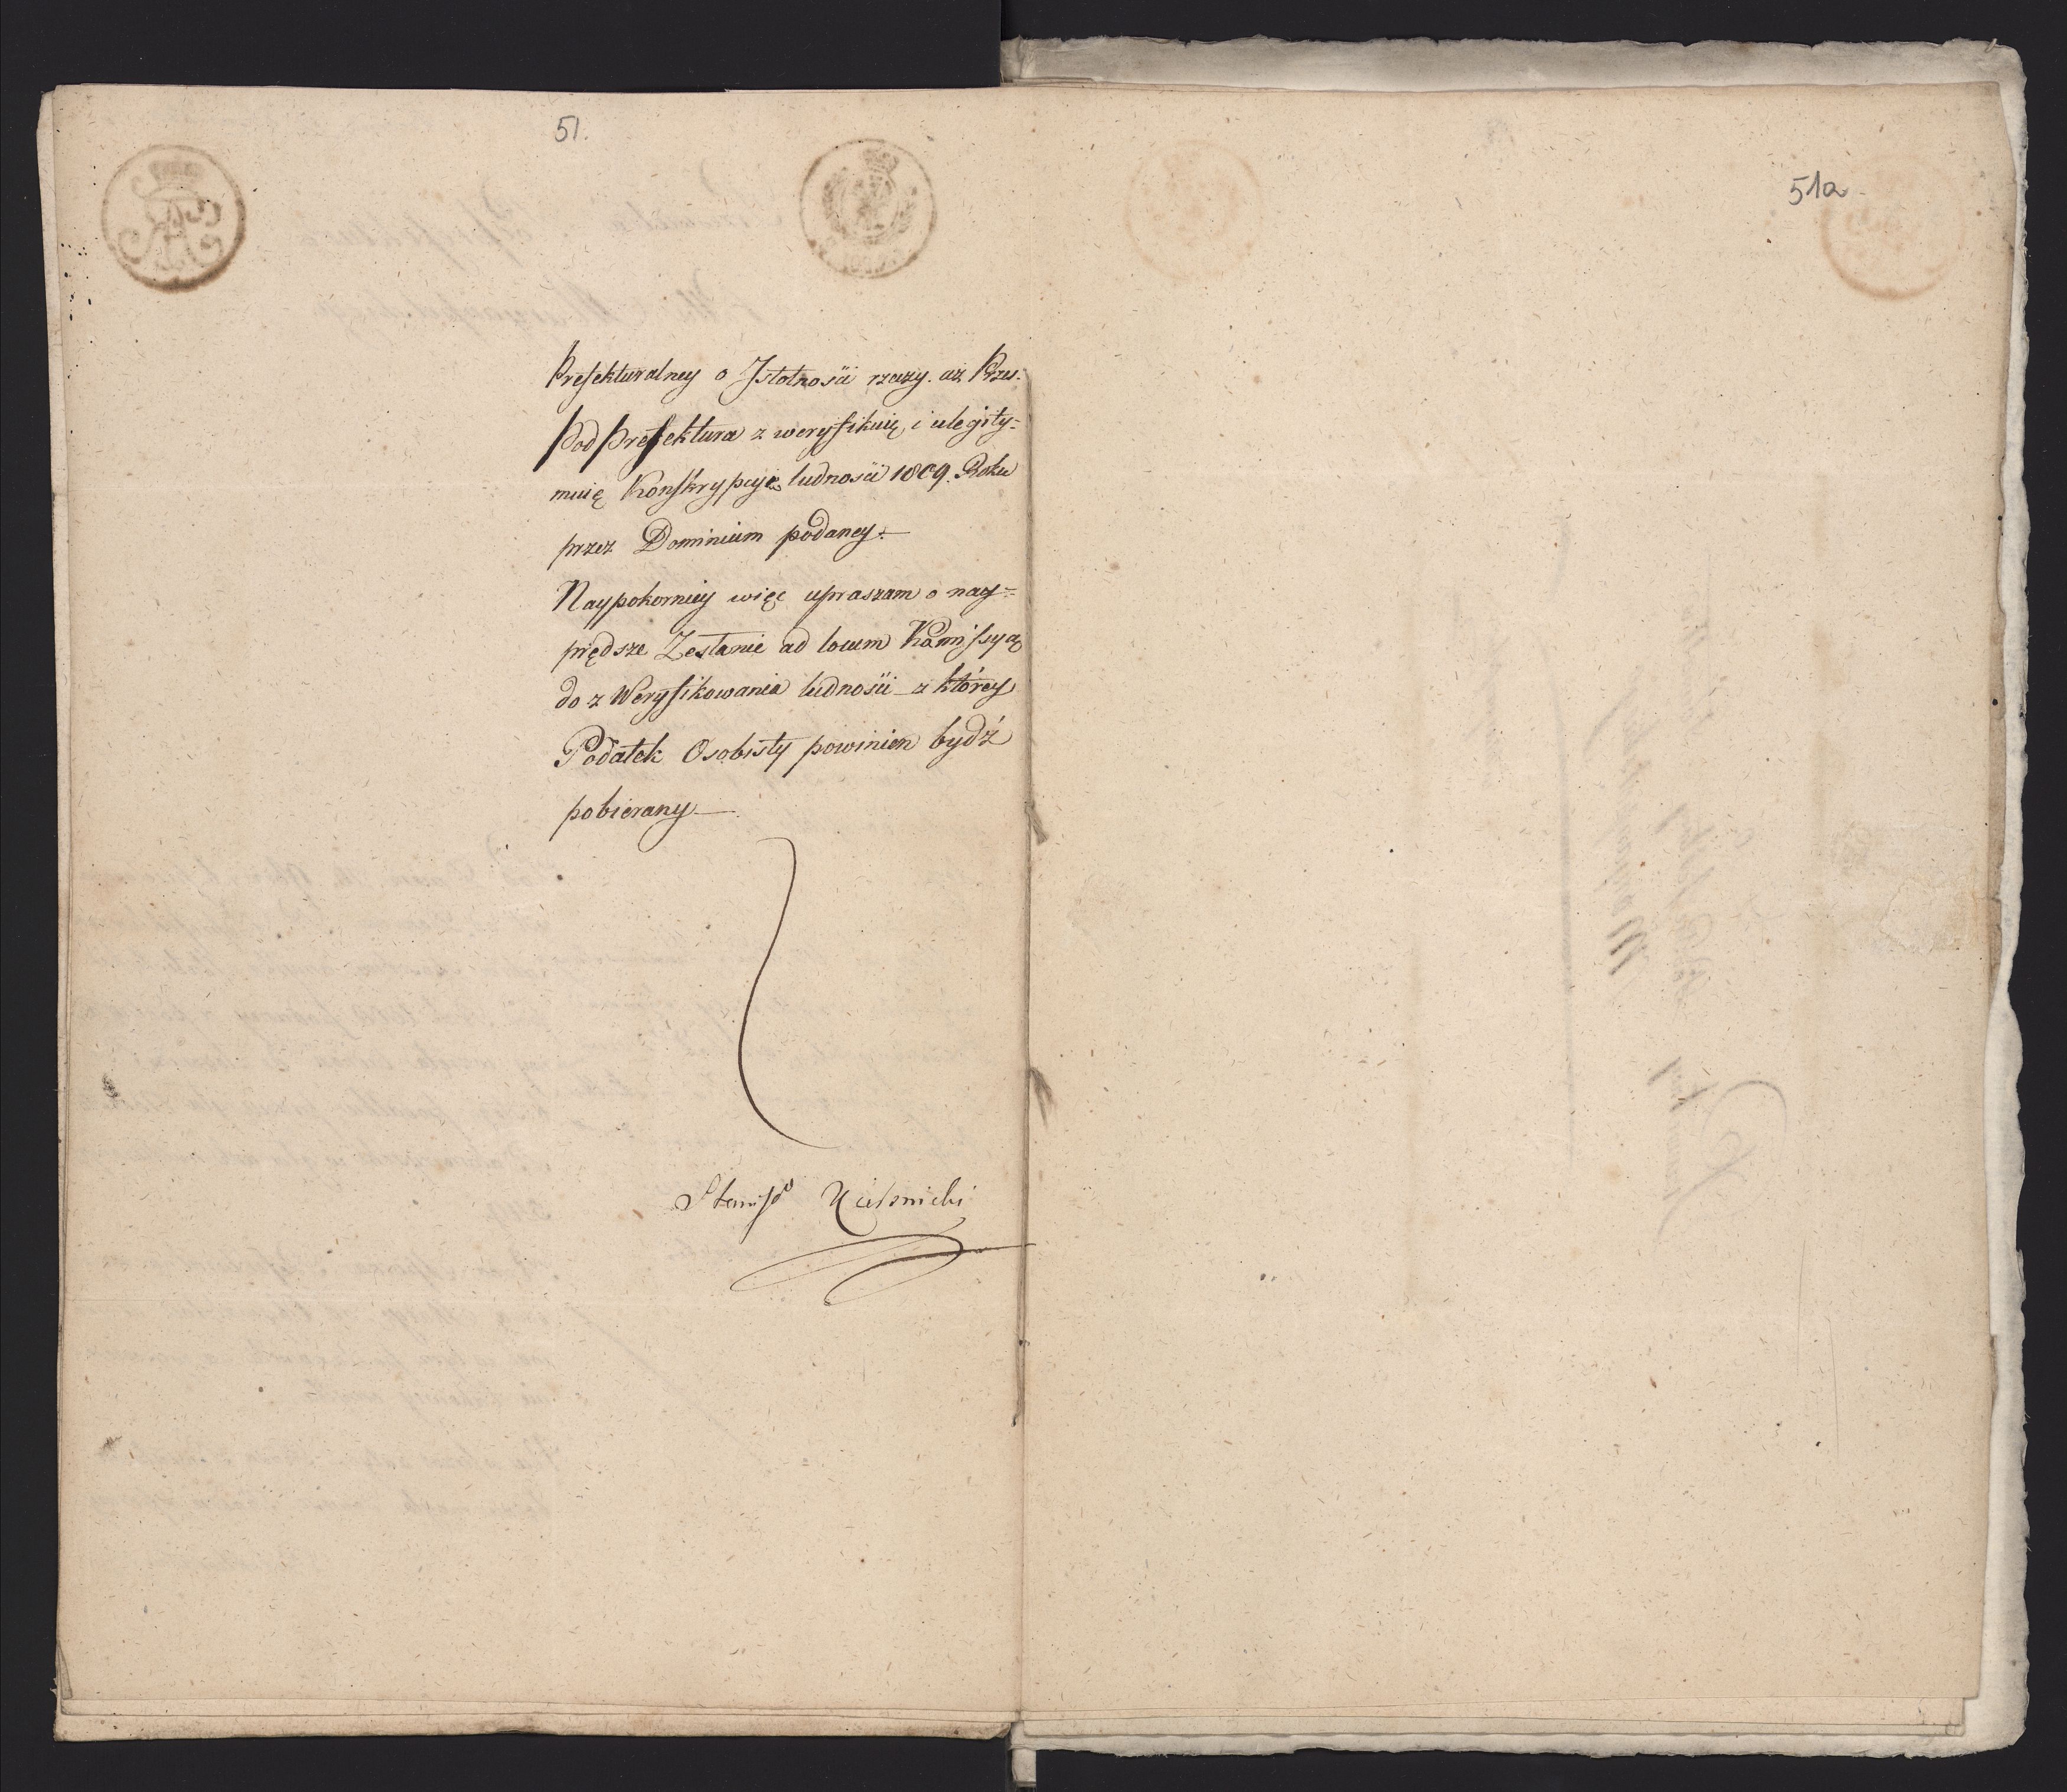 51.
51a
Prefekturalney o Jstotności rzeczy. aż Prze.
Pod Prefektura z weryfikuię i ulegity=
muię Konskrypcyie ludności 1809. Roku
przez Dominium podaney.
Naypokorniey więc upraszam o nay=
prędsze Zesłanie ad locum Kommissyą
do z Weryfikowania ludności z którey
Podatek Osobisty powinien bydź
pobierany
Stanisł